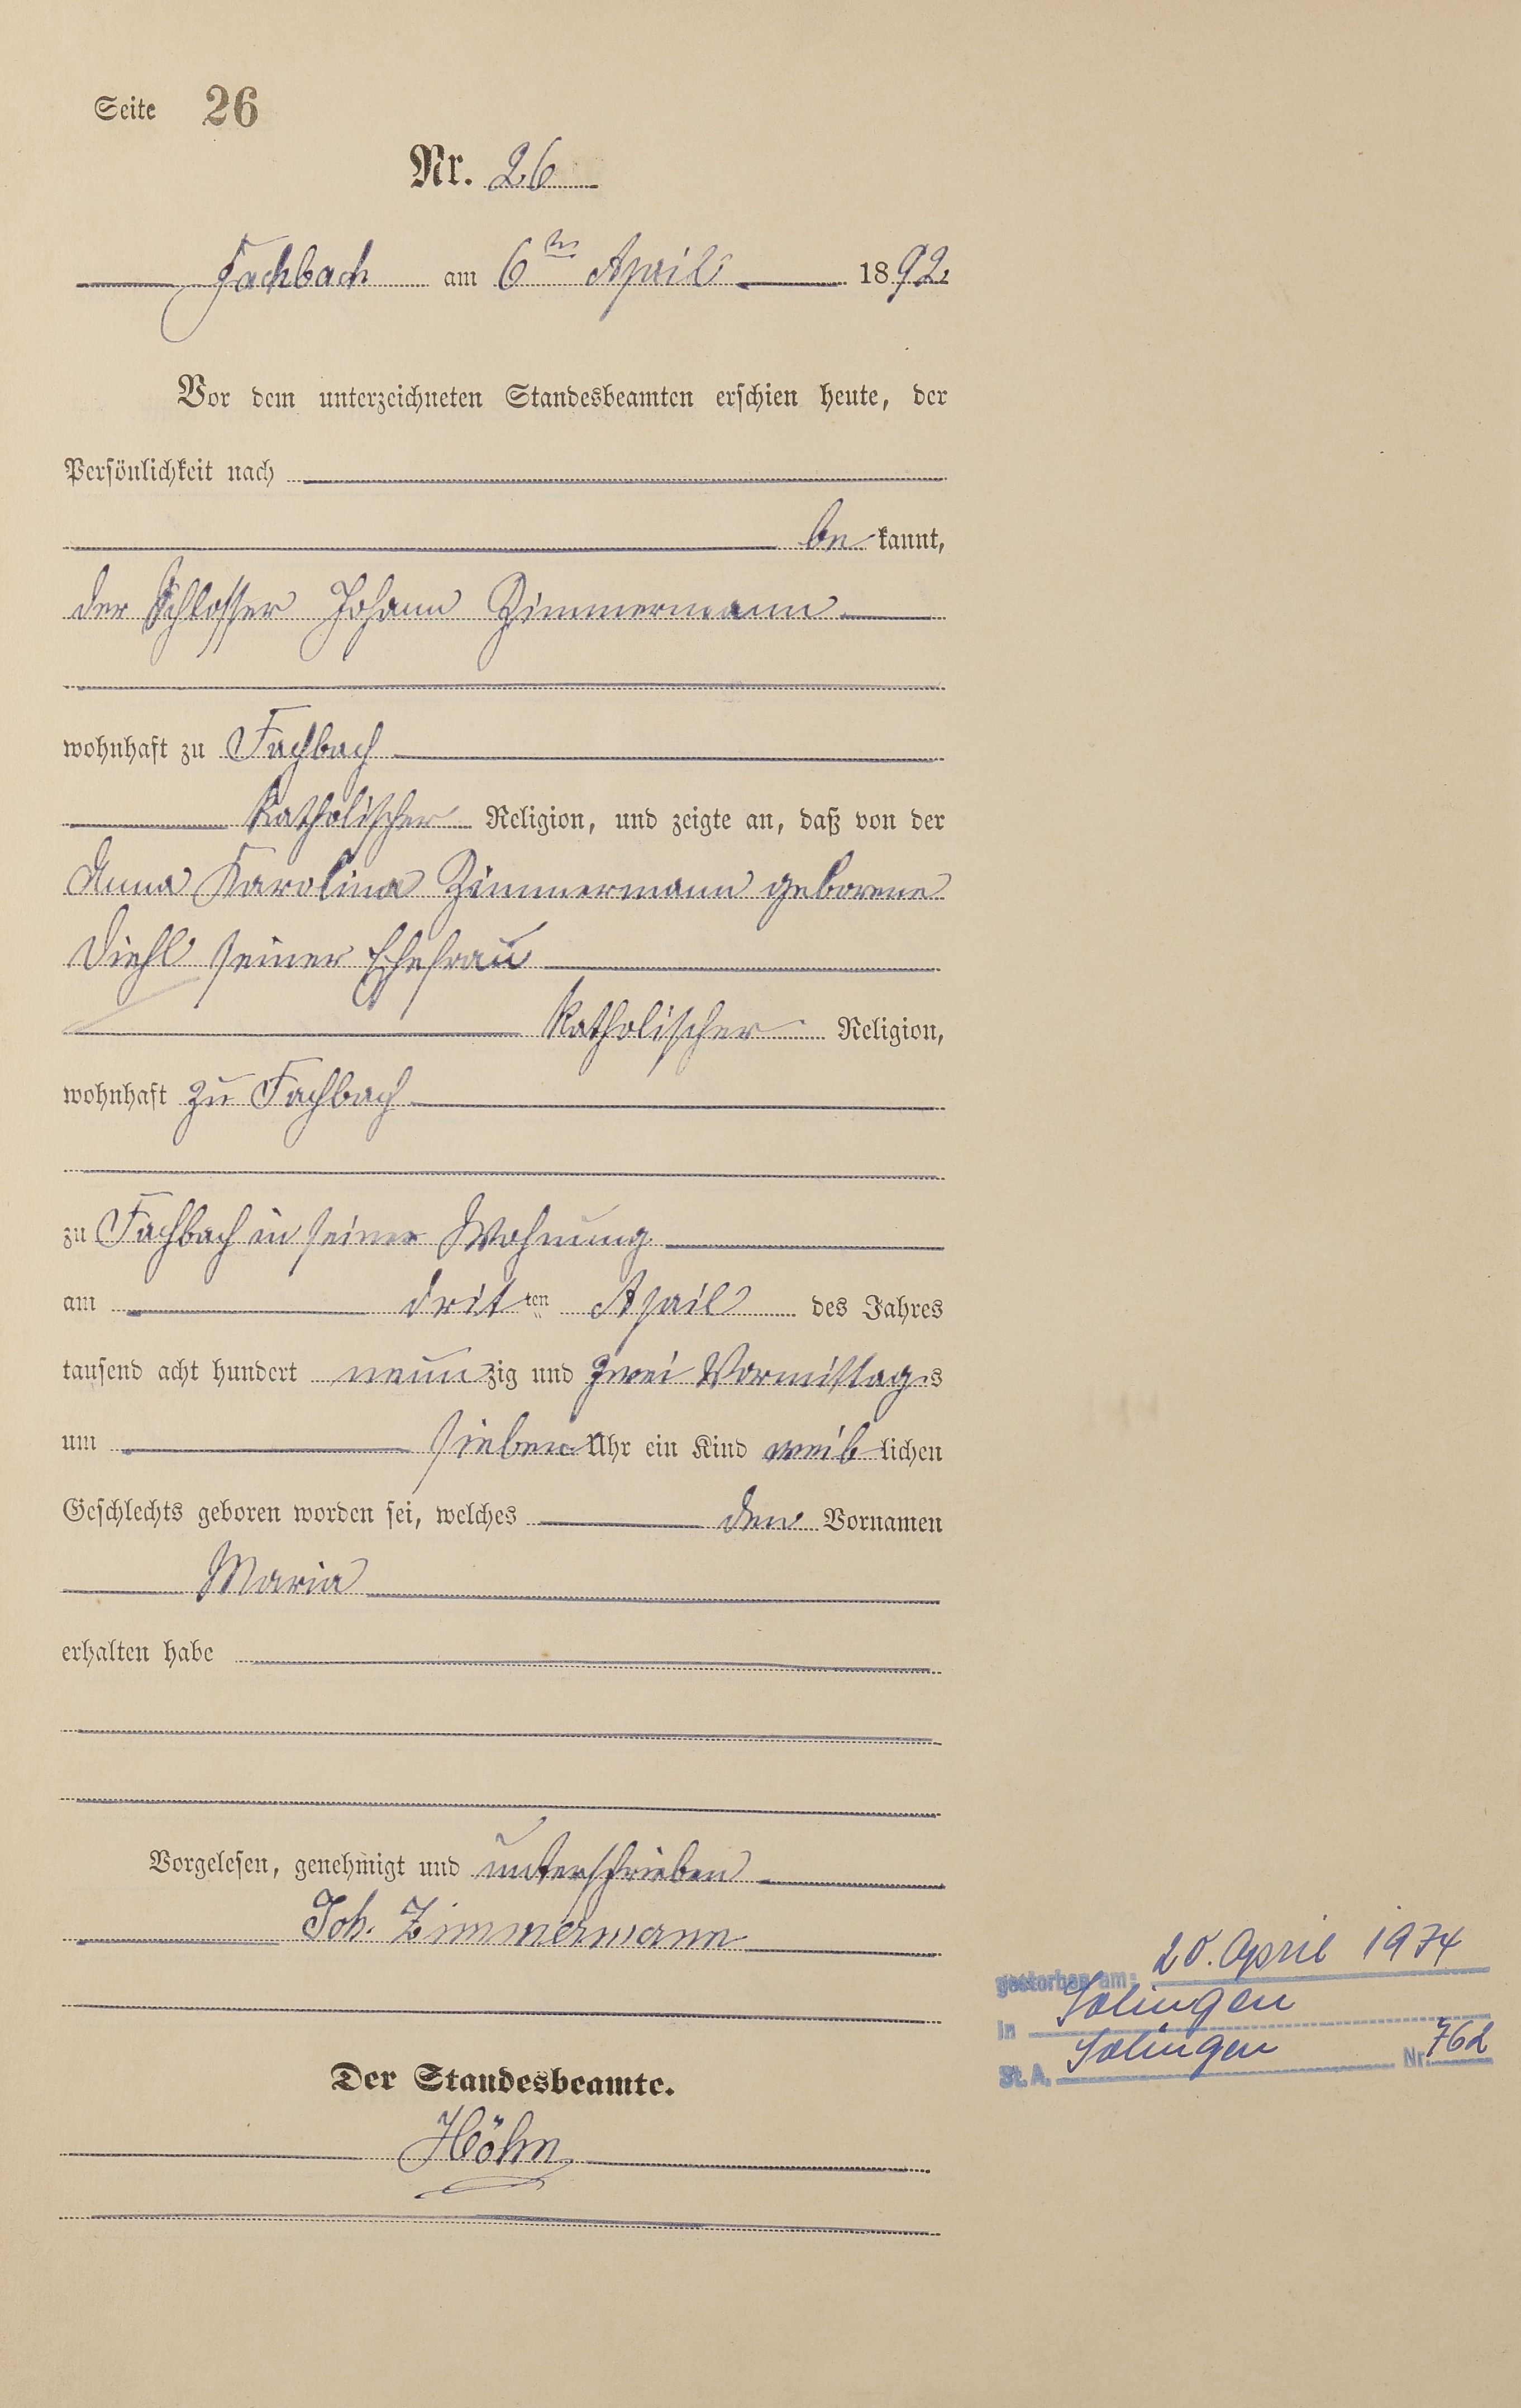 Seite 26
Nr. 26
Fachbach am 6ten April 1892
Vor dem unterzeichneten Standesbeamten erschien heute, der
Persönlichkeit nach
be kannt,
der Schlosser Johann Zimmermann
wohnhaft zu Fachbach
katholischer Religion, und zeigte an, daß von der
Anna Karolina Zimmermann geborene
Diehl seiner Ehefrau
katholischer Religion,
wohnhaft zu Fachbach
zu Fachbach in seiner Wohnung
am dritten April des Jahres
tausend acht hundert neunzig und zwei Vormittags
um sieben Uhr ein Kind weiblichen
Geschlechts geboren worden sei, welches den Vornamen
Maria
erhalten habe
Vorgelesen, genehmigt und unterschrieben
Joh. Zimmermann
Der Standesbeamte.
Höhn
gestorben am: 20. April 1974
in Solingen
St. A. Solingen Nr. 762